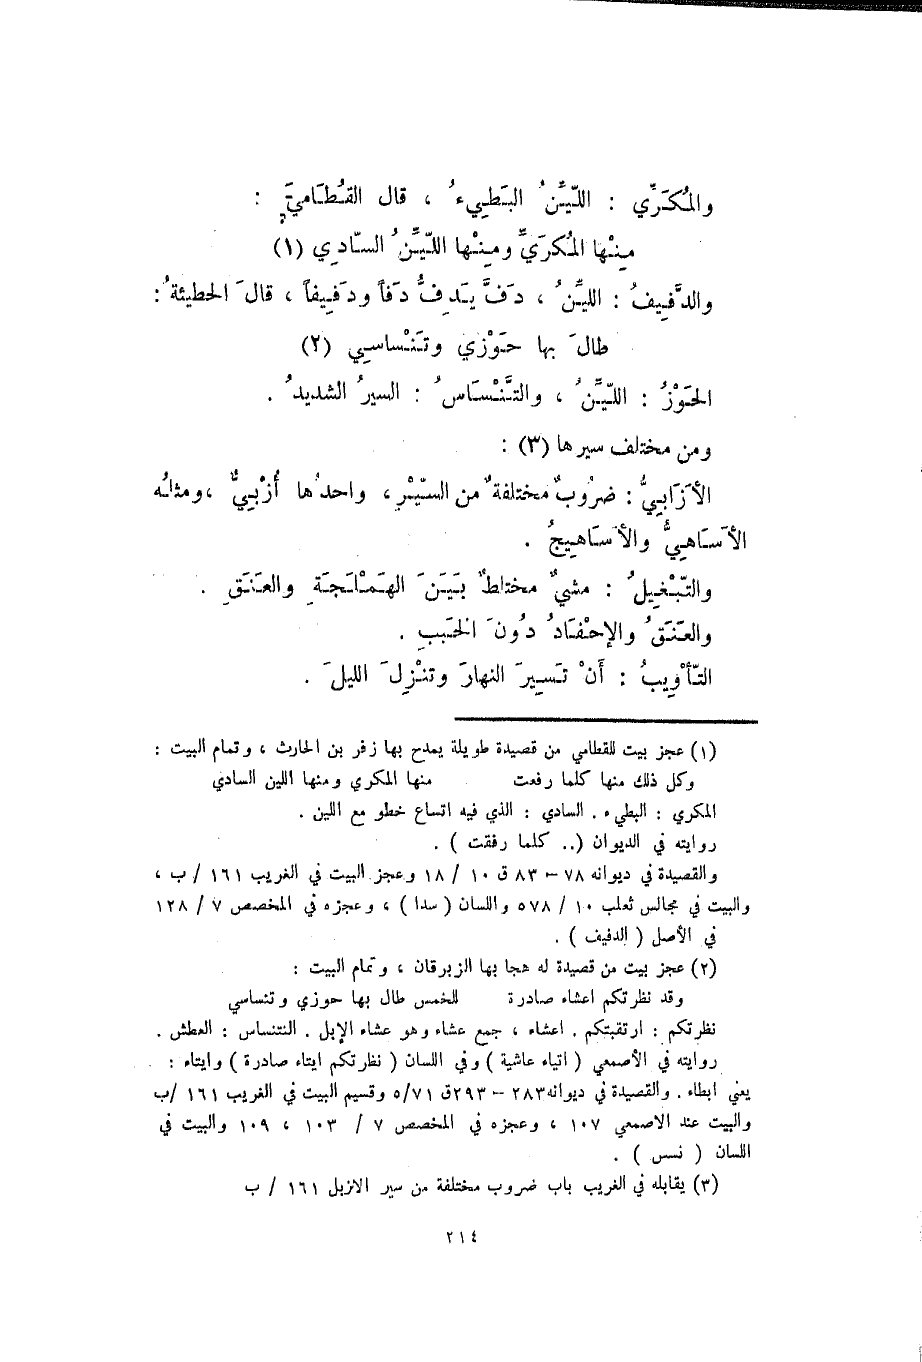 والمُكَرِّي : اللَّيِّنُ البَطِيءُ ، قال القُطَامِيّ :
مِنْها المُكَرِيُّ ومِنْها اللَّيِّنُ السّادِي (١)
والدَّفِيفُ : الليِّنُ ، دَفَّ يَدِفُّ دَفاً ودَفِيفاً ، قالَ الحطيئةُ :
طالَ بها حَوْزي وتَنْساسي (٢)
الحَوْزُ : اللَّيِّنُ ، والتَّنْسَاسُ : السيرُ الشديدُ .
ومن مختلف سيرها (٣) :
الأَزَابِيُّ : ضرُوبٌ مختلفةٌ من السَّيْرِ ، واحدُها أُزْبِيٌّ ، ومثلُه
الأَسَاهِيُّ والأَسَاهِيجُ .
والتَّبْغِيلُ : مشيٌ مختلطٌ بَيَنَ الهَمْلَجَةِ والعَنَقِ .
والعَنَقُ والإحْفَادُ دُونَ الخَبَبِ .
التَّأْوِيبُ : أَنْ تَسِيرَ النهارَ وتنْزِلَ الليلَ .
(١) عجز بيت للقطامي من قصيدة طويلة يمدح بها زفر بن الحارث ، وتمام البيت :
وكل ذلك منها كلما رفعت منها المكري ومنها اللين السادي
المكري : البطيء . السادي : الذي فيه اتساع خطو مع اللين .
روايته في الديوان (.. كلما رفقت ) .
والقصيدة في ديوانه ٧٨ – ٨٣ ق ١٠ / ١٨ وعجز البيت في الغريب ١٦١ / ب ،
والبيت في مجالس ثعلب ١٠ / ٥٧٨ واللسان ( سدا ) ، وعجزه في المخصص ٧ / ١٢٨
في الأصل ( الدفيف ) .
(٢) عجز بيت من قصيدة له هجا بها الزبرقان ، وتمام البيت :
وقد نظرتكم اعشاء صادرة للخمس طال بها حوزي وتنساسي
نظرتكم : ارتقبتكم . اعشاء ، جمع عشاء وهو عشاء الإبل . التنساس : العطش .
روايته في الأصمعي ( اتياء عاشية ) وفي اللسان ( نظرتكم ايتاء صادرة ) وايتاء :
يعني ابطاء . والقصيدة في ديوانه ٢٨٣ – ٢٩٣ ق ٥/٧١ وقسيم البيت في الغريب ١٦١ /ب
والبيت عند الاصمعي ١٠٧ ، وعجزه في المخصص ٧ / ١٠٣ ، ١٠٩ والبيت في
اللسان ( نسس ) .
(٣) يقابله في الغريب باب ضروب مختلفة من سير الازبل ١٦١ / ب
٢١٤